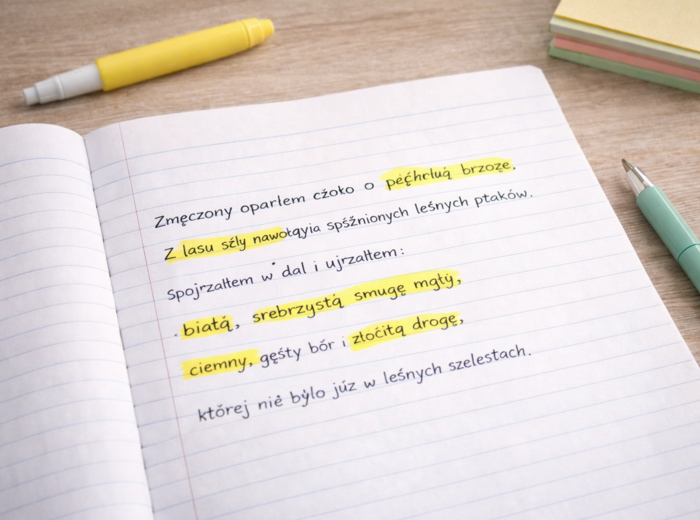 Zmęczony oparłem cźoko o pęćhrluą brzozę.
Z lasu sźly nawołąyia spśźnionych leśnych ptaków.
Spojrzałtem w dal i ujrzałtem:
biatą, srebrzystą smugę mgły,
ciemny, gęśty bór i złoćitą drogę,
której nie bylo júz w leśnych szelestach.